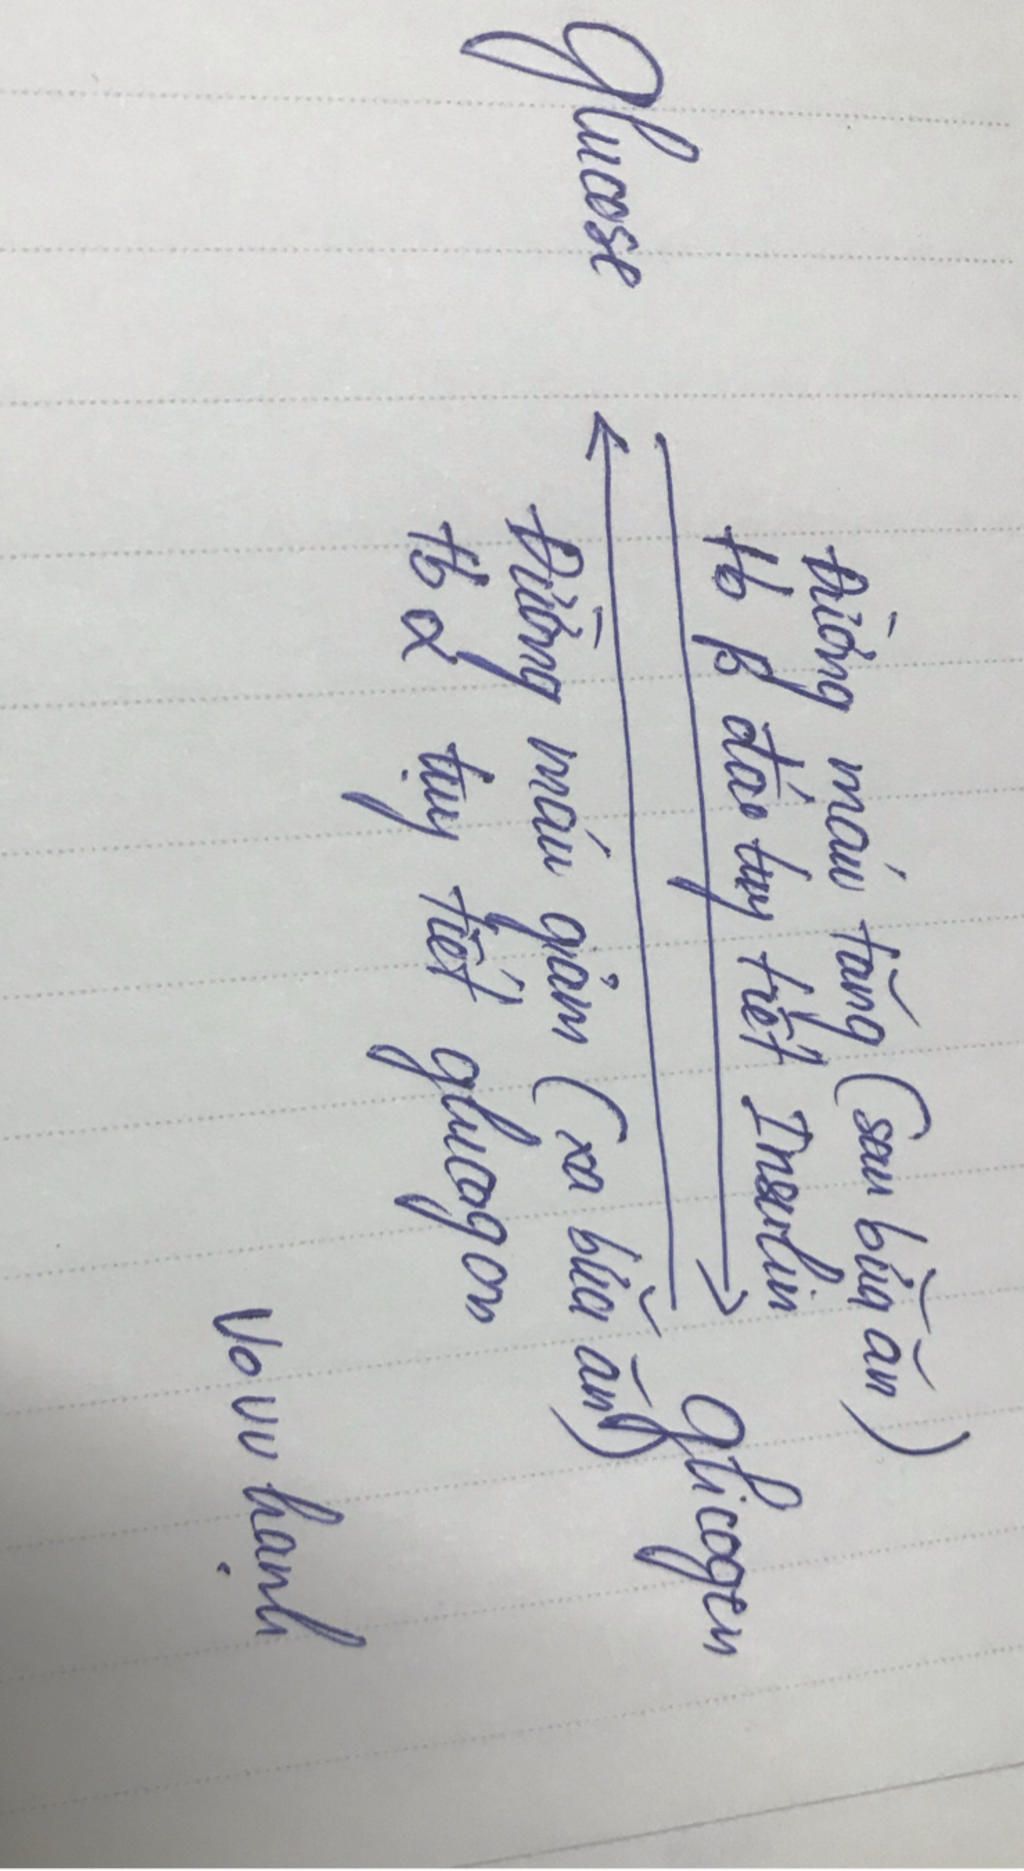 Đường máu tăng (sau bữa ăn)
tb β đảo tụy tiết Insulin
Glucose
glicogen
Đường máu giảm (xa bữa ăn)
tb α tụy tiết glucagon
Vo vu hạnh